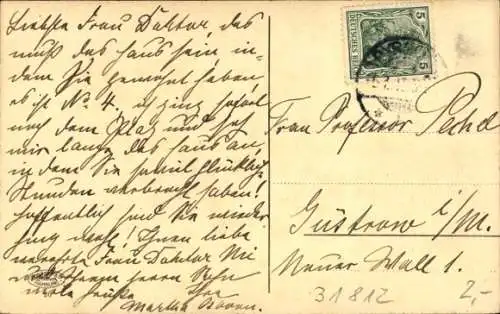 Liebste Frau Doktor, das
muß das Haus sein, in
dem Sie gewohnt haben,
es ist No. 4. ich ging sofort
nach dem Platz und sah
mir lange das Haus an,
in dem Sie soviel glückliche
Stunden verbracht haben!
Hoffentlich sind Sie wieder
Ihnen, liebe
verehrte Frau Doktor
Herrn Sohn
viele Grüße Ihre
Martha
DEUTSCHES REICH
5
5
Frau Professor Pechel
Güstrow i/M.
Neuer Wall 1.
31812
2,-